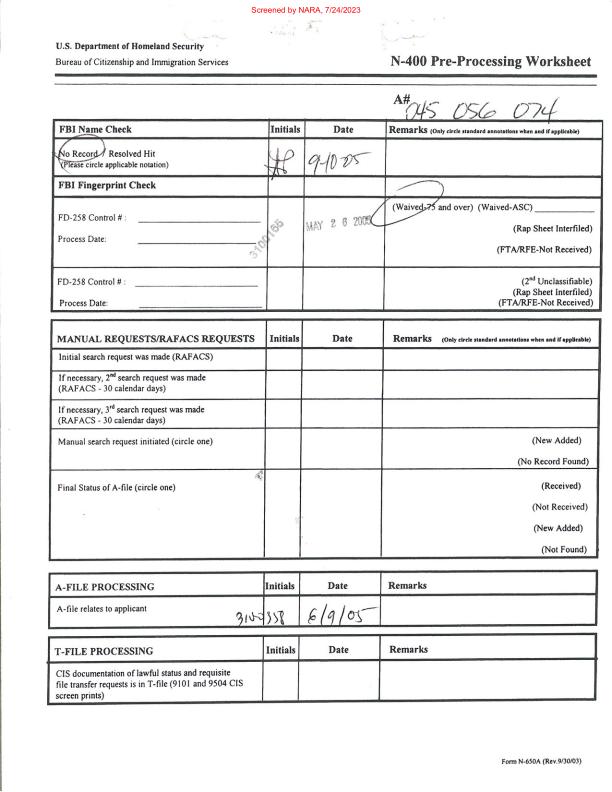 Screened by NARA, 7/24/2023
U.S. Department of Homeland Security
Bureau of Citizenship and Immigration Services
N-400 Pre-Processing Worksheet
A# 045 056 074
FBI Name Check Initials Date Remarks (Only circle standard annotations when and if applicable)
No Record / Resolved Hit
(Please circle applicable notation)
9-10-05
FBI Fingerprint Check
(Waived-75 and over) (Waived-ASC)
FD-258 Control # :
MAY 26 2005
(Rap Sheet Interfiled)
Process Date:
3100165
(FTA/RFE-Not Received)
FD-258 Control # :
(2nd Unclassifiable)
(Rap Sheet Interfiled)
Process Date:
(FTA/RFE-Not Received)
MANUAL REQUESTS/RAFACS REQUESTS Initials Date Remarks (Only circle standard annotations when and if applicable)
Initial search request was made (RAFACS)
If necessary, 2nd search request was made
(RAFACS - 30 calendar days)
If necessary, 3rd search request was made
(RAFACS - 30 calendar days)
Manual search request initiated (circle one) (New Added)
(No Record Found)
Final Status of A-file (circle one) (Received)
(Not Received)
(New Added)
(Not Found)
A-FILE PROCESSING Initials Date Remarks
A-file relates to applicant 6/9/05
T-FILE PROCESSING Initials Date Remarks
CIS documentation of lawful status and requisite
file transfer requests is in T-file (9101 and 9504 CIS
screen prints)
Form N-650A (Rev.9/30/03)